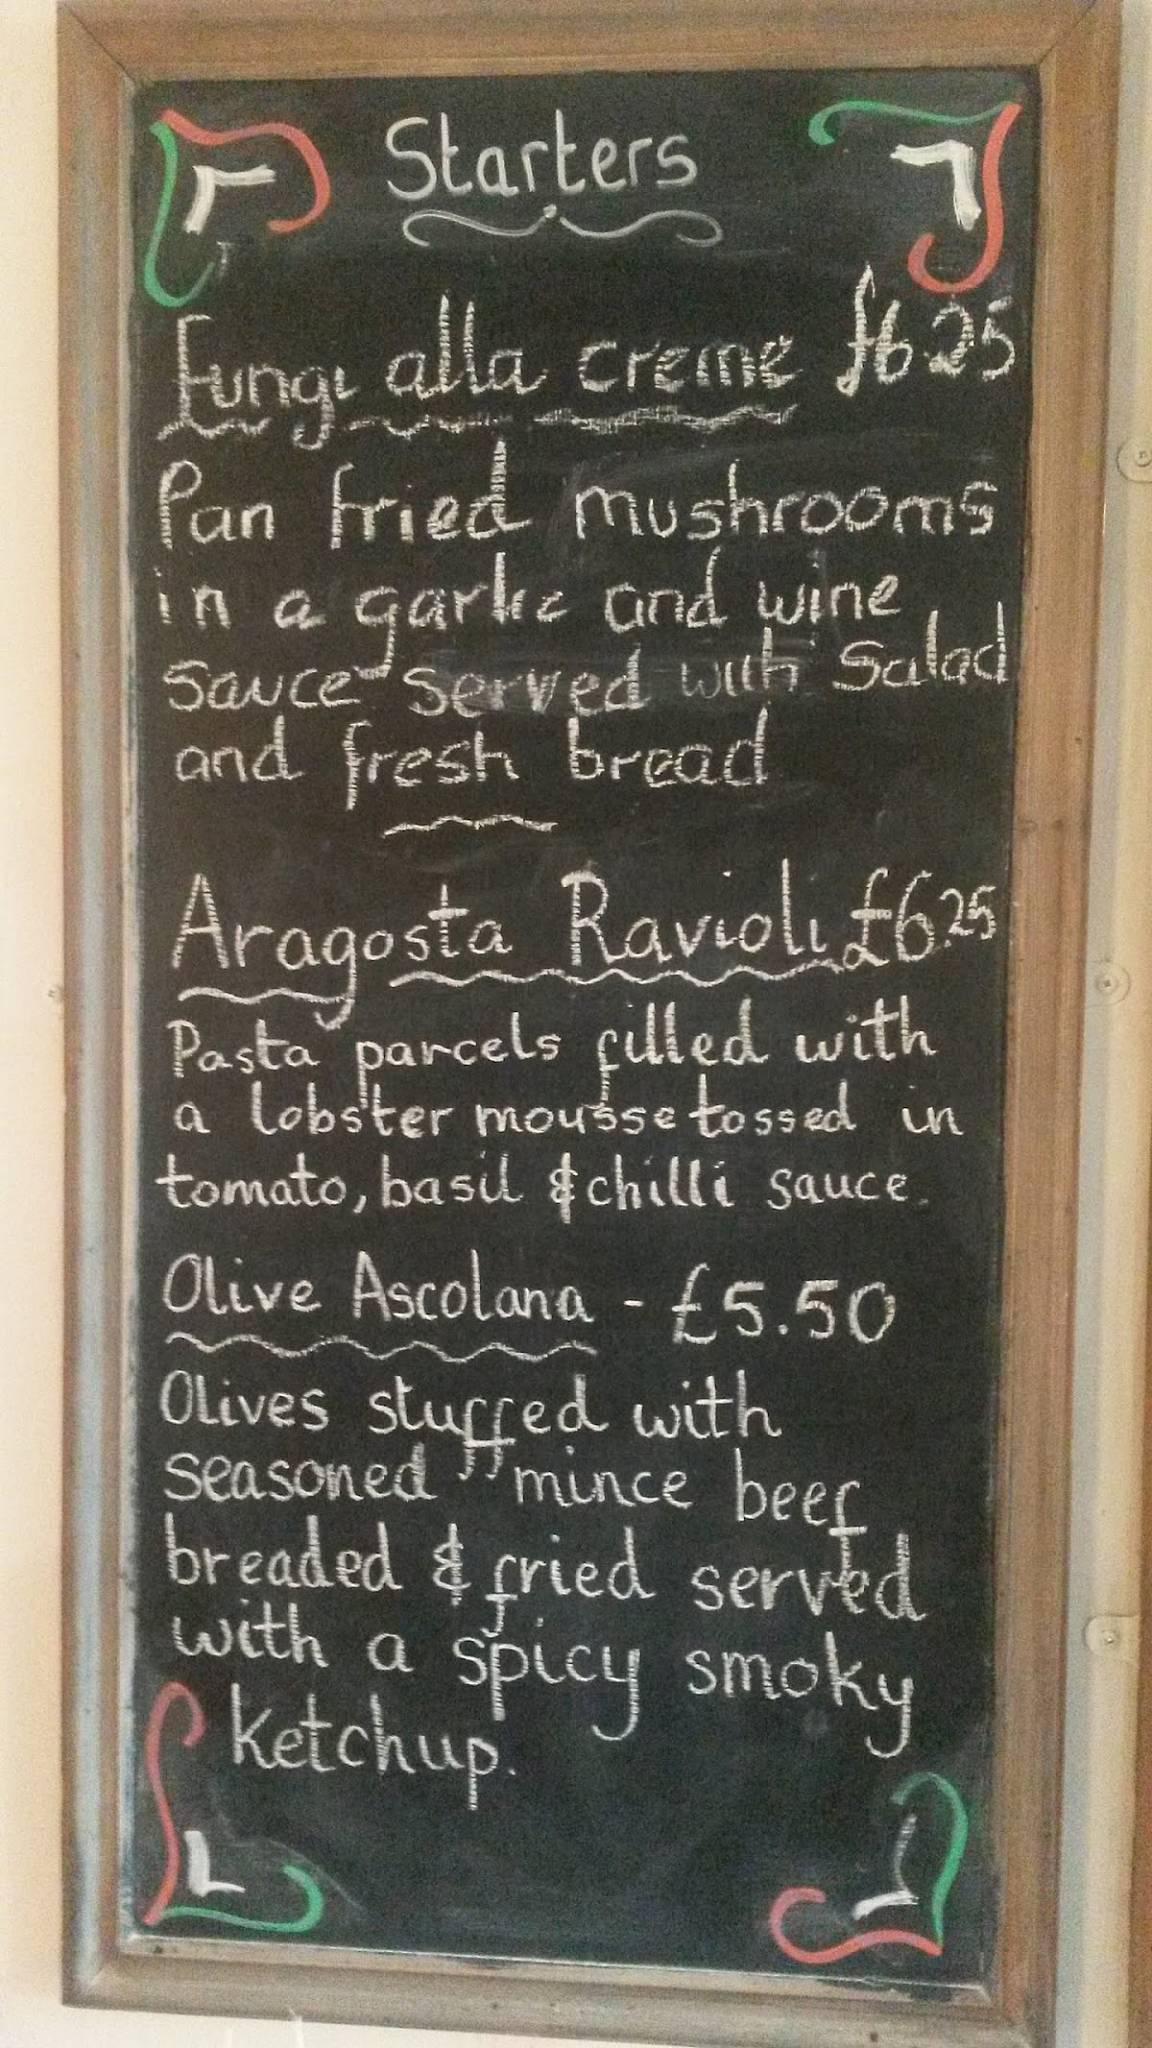 Starters
Fungi alla creme £6 25
Pan fried mushrooms
in a garlic and wine
sauce served with Salad
and fresh bread
Aragosta Ravioli £6.25
Pasta parcels filled with
a lobster mousse tossed in
tomato, basil & chilli sauce.
Olive Ascolana - £5.50
Olives stuffed with
seasoned mince beef
breaded & fried served
with a spicy smoky
ketchup.